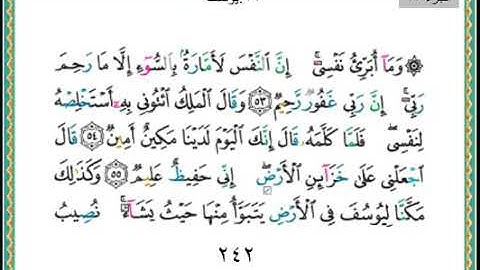 ۞ وَمَآ أُبَرِّئُ نَفْسِىٓ ۚ إِنَّ ٱلنَّفْسَ لَأَمَّارَةٌۢ بِٱلسُّوٓءِ إِلَّا مَا رَحِمَ
رَبِّىٓ ۚ إِنَّ رَبِّى غَفُورٌ رَّحِيمٌ ٥٣ وَقَالَ ٱلْمَلِكُ ٱئْتُونِى بِهِۦٓ أَسْتَخْلِصْهُ
لِنَفْسِى ۖ فَلَمَّا كَلَّمَهُۥ قَالَ إِنَّكَ ٱلْيَوْمَ لَدَيْنَا مَكِينٌ أَمِينٌ ٥٤ قَالَ
ٱجْعَلْنِى عَلَىٰ خَزَآئِنِ ٱلْأَرْضِ ۖ إِنِّى حَفِيظٌ عَلِيمٌ ٥٥ وَكَذَٰلِكَ
مَكَّنَّا لِيُوسُفَ فِى ٱلْأَرْضِ يَتَبَوَّأُ مِنْهَا حَيْثُ يَشَآءُ ۚ نُصِيبُ
٢٤٢